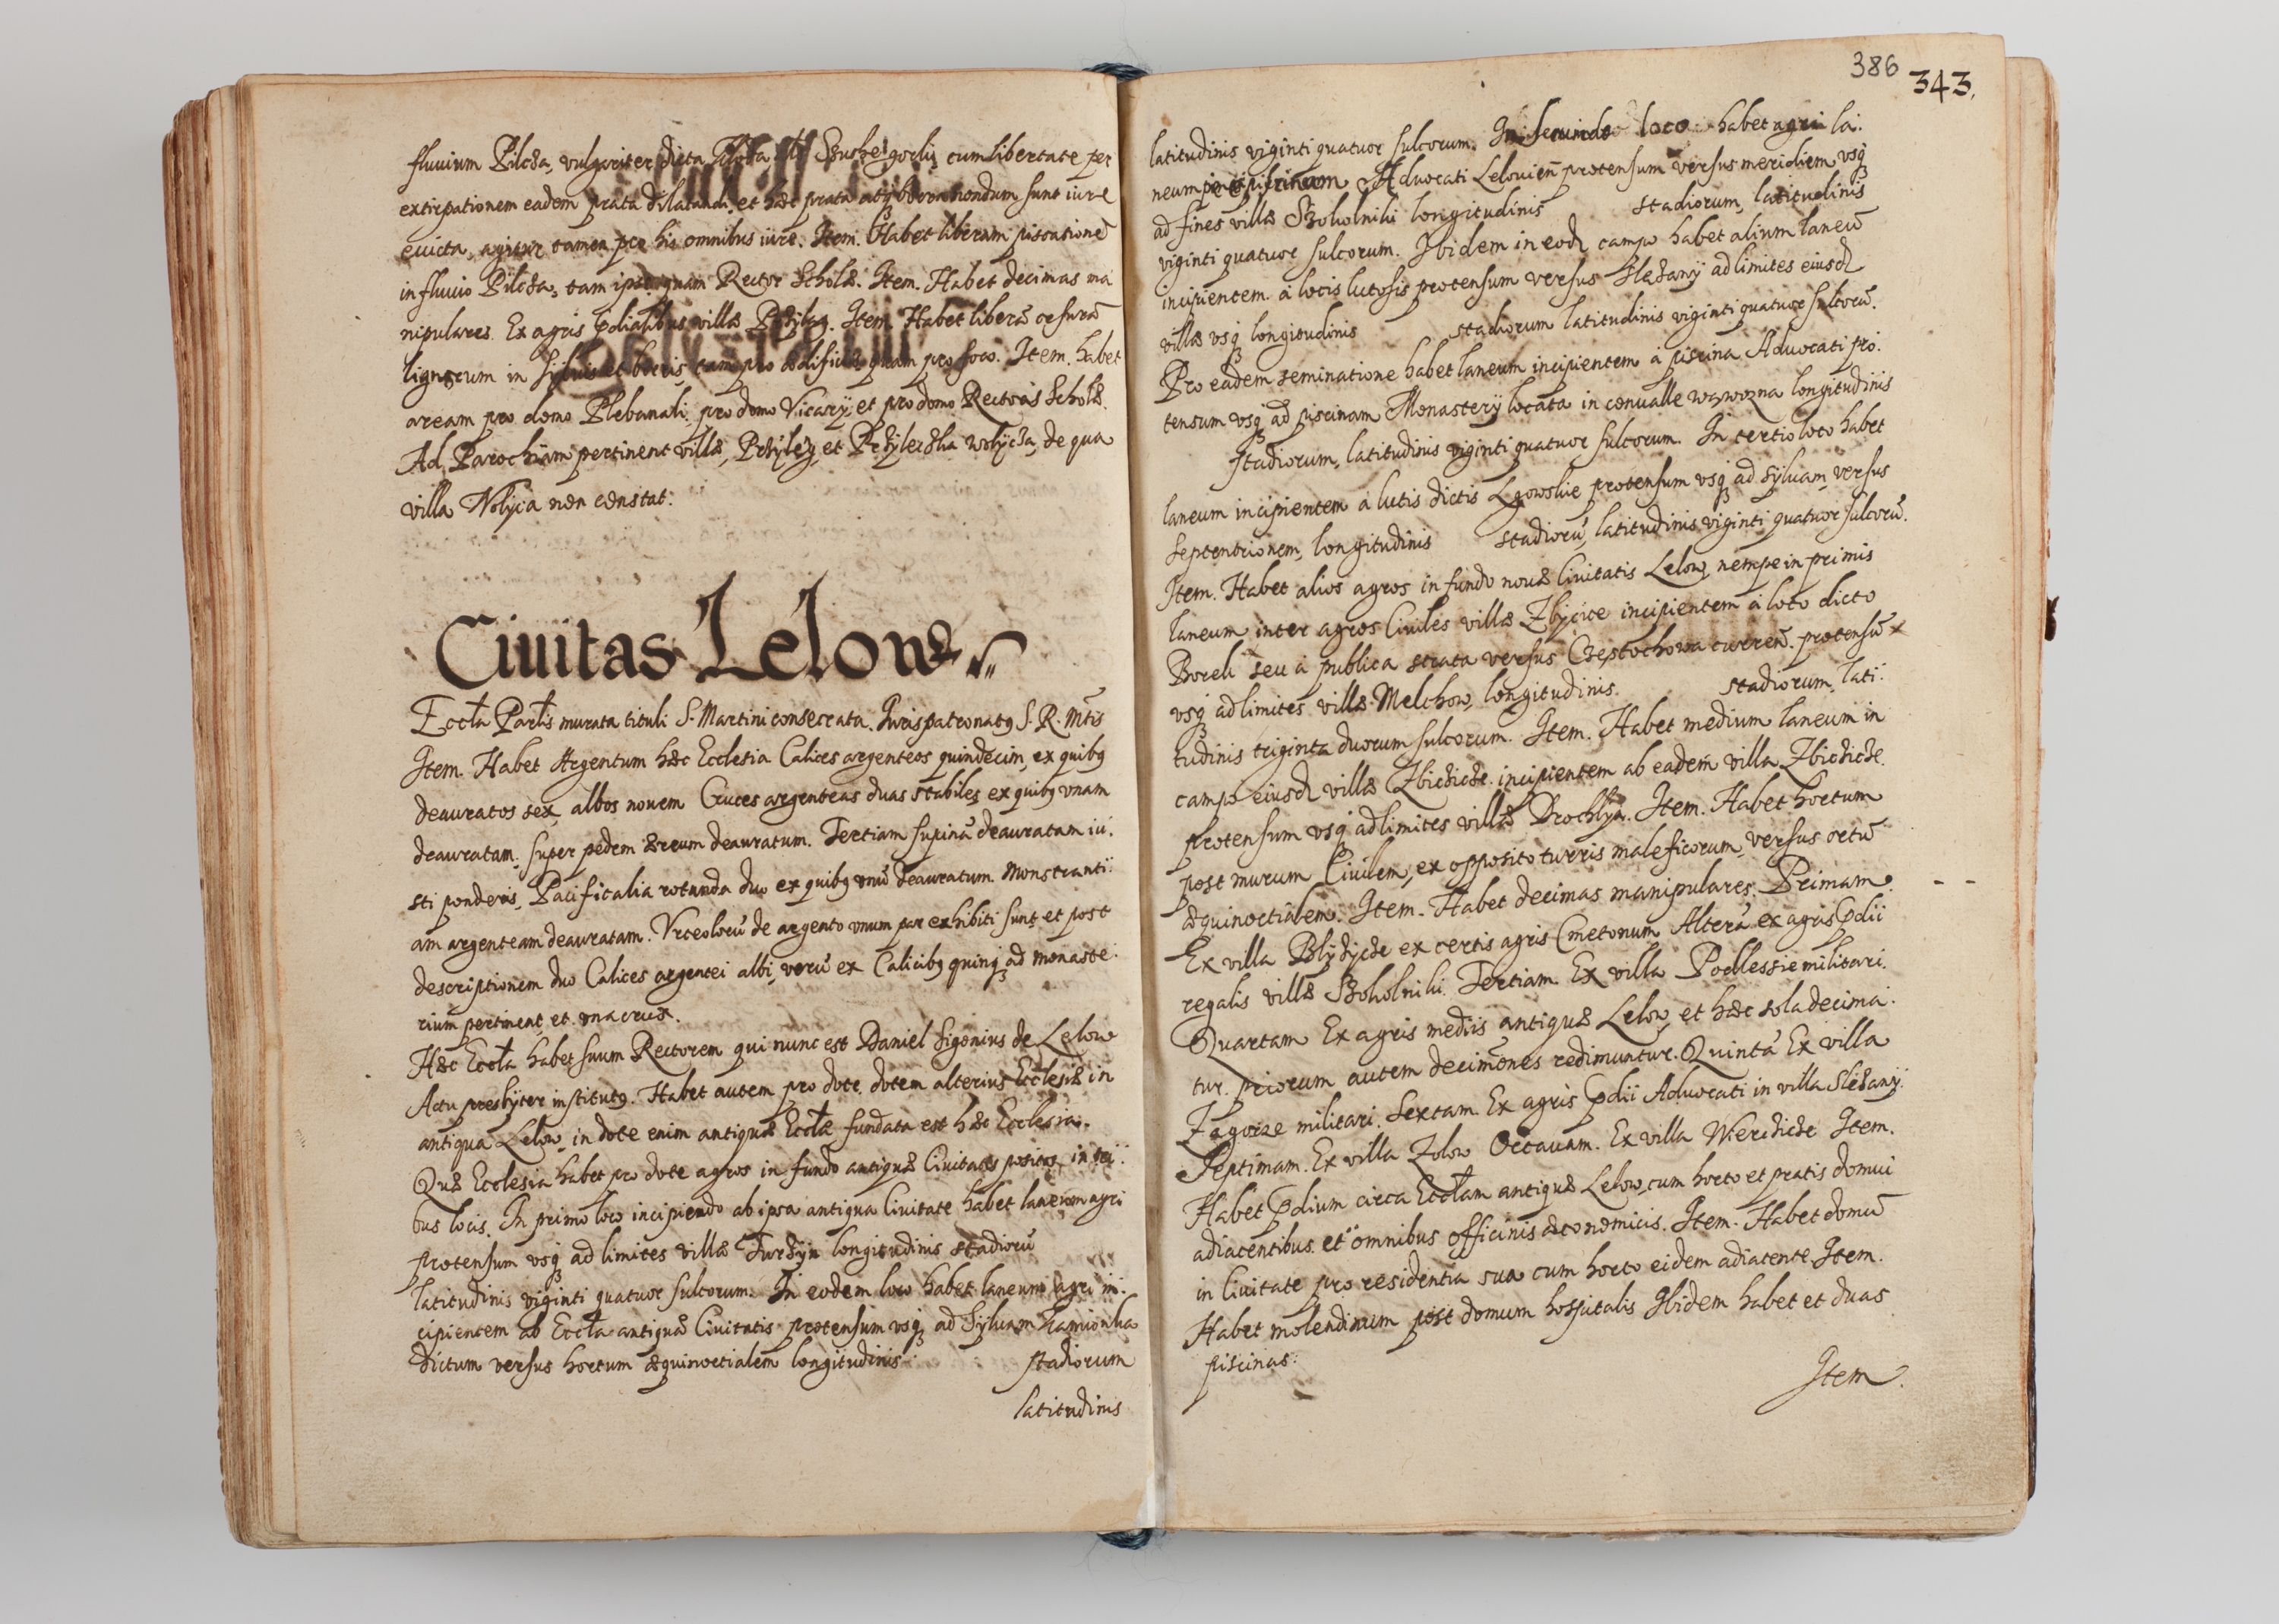 fluuium Pilcza, vulgariter dicta cum libertate per
extirpationem eadem prata dilatandi, et hæc prata nondum sunt iure
euicta, agitur tamen pro his omnibus iure. Item. Habet liberam piscationē
in fluuio Pilcza, tam ipse quam Rector Scholæ. Item. Habet decimas ma
nipulares. Ex agris villæ Item. Habet liberā cæsurā
lignorum in Syluis et boris tam pro ædificiis quam pro foco. Item. habet
aream pro domo Plebanali, pro domo Vicarÿ, et pro domo Rectoris Scholæ.
Ad Parochiam pertinent villæ, et Wolÿcza, de qua
villa Wolÿca non constat:
Ciuitas Lelow
Eccła Parłis murata tituli S. Martini consecrata. Iurispatronatꝰ S. R. Mtis
Item. Habet Argentum hæc Ecclesia Calices argenteos quindecim, ex quibꝰ
deauratos sex, albos nouem Cruces argenteas duas stabiles ex quibꝰ vnam
deauratam, super pedem æreum deauratum. Tertiam supinā deauratam iu:
sti ponderis, Pacificalia rotunda duo ex quibꝰ vnū deauratum. Monstranti:
am argenteam deauratam. Vrceolorū de argento vnum par exhibiti sunt et post
descriptionem duo Calices argentei albi, verū ex Calicibꝰ quinqꝫ ad monaste:
rium pertinent et vna crux.
Hæc Eccła habet suum Rectorem qui nunc est Daniel Sigonius de Lelow
Actu presbÿter institutꝰ. Habet autem pro dote, dotem alterius Ecclesiæ in
antiqua Lelow, in dote enim antiquæ Eccłæ fundata est hæc Ecclesia.
Quæ Ecclesia habet pro dote agros in fundo antiquæ Ciuitatis positos in tri:
bus locis. In primo loco incipiendo ab ipsa antiqua Ciuitate habet laneum agri
protensum vsqꝫ ad limites villæ Turzÿn longitudinis stadiorū
latitudinis viginti quatuor sulcorum. In eodem loco habet laneum agri in:
cipientem ab Eccła antiquæ Ciuitatis protensum vsqꝫ ad Syluam Kamionka
dictum versus hortum æquinoctialem longitudinis: stadiorum
latitudinis
386 343.
latitudinis viginti quatuor sulcorum. In secundo loco habet agri la:
neum Aduocati Leloui[en] protensum versus meridiem vsqꝫ
ad fines villæ Szokolniki longitudinis stadiorum, latitudinis
viginti quatuor sulcorum. Ibidem in eod campo habet alium laneū
incipientem à locis lutosis protensum versus Slezanÿ ad limites eiusd
villæ vsqꝫ longitudinis stadiorum latitudinis viginti quatuor sulcorū.
Pro eadem seminatione habet laneum incipientem à piscina Aduocati pro:
tensum vsqꝫ ad piscinam Monasterÿ locata in conualle wąwozna longitudinis
stadiorum, latitudinis viginti quatuor sulcorum. In tertio loco habet
laneum incipientem à lutis dictis Lgowskie protensum vsqꝫ ad syluam, versus
Septentrionem, longitudinis stadiorū, latitudinis viginti quatuor sulcorū.
Item. Habet alios agros in fundo nouæ Ciuitatis Lelow, nempe in primis
laneum inter agros Ciuiles villæ Zbÿcice incipientem à loco dicto
Borek seu à publica strata versus Częstochowa currenū. protensū
vsqꝫ ad limites villæ Melchow, longitudinis. stadiorum, lati:
tudinis triginta duorum sulcorum. Item. Habet medium laneum in
campo eiusd villæ Zbicicze incipientem ab eadem villa Zbicicze.
protensum vsqꝫ ad limites villæ Drochlÿn. Item. Habet hortum
post murum Ciuilem, ex opposito turris maleficorum, versus ortū
æquinoctialem. Item. Habet decimas manipulares. Primam.
Ex villa ex certis agris Cmetonum Alterā ex agris pdii
regalis villæ Szokolniki. Tertiam Ex villa Podlessie militari.
Quartam Ex agris mediis antiquæ Lelow, et hæc sola decima:
tur, priorum autem decimones redimuntur. Quintā Ex villa
Zagorze militari. Sextam. Ex agris pdii Aduocati in villa Slezanÿ.
Septimam. Ex villa Zolow Octauam. Ex villa Item.
Habet pdium circa Eccłam antiquæ Lelow, cum horto et pratis domui
adiacentibus. et omnibus officinis œconomicis. Item. Habet domū
in Ciuitate pro residentia sua cum horto eidem adiacente. Item.
Habet molendinum post domum hospitalis Ibidem habet et duas
piscinas:
Item.